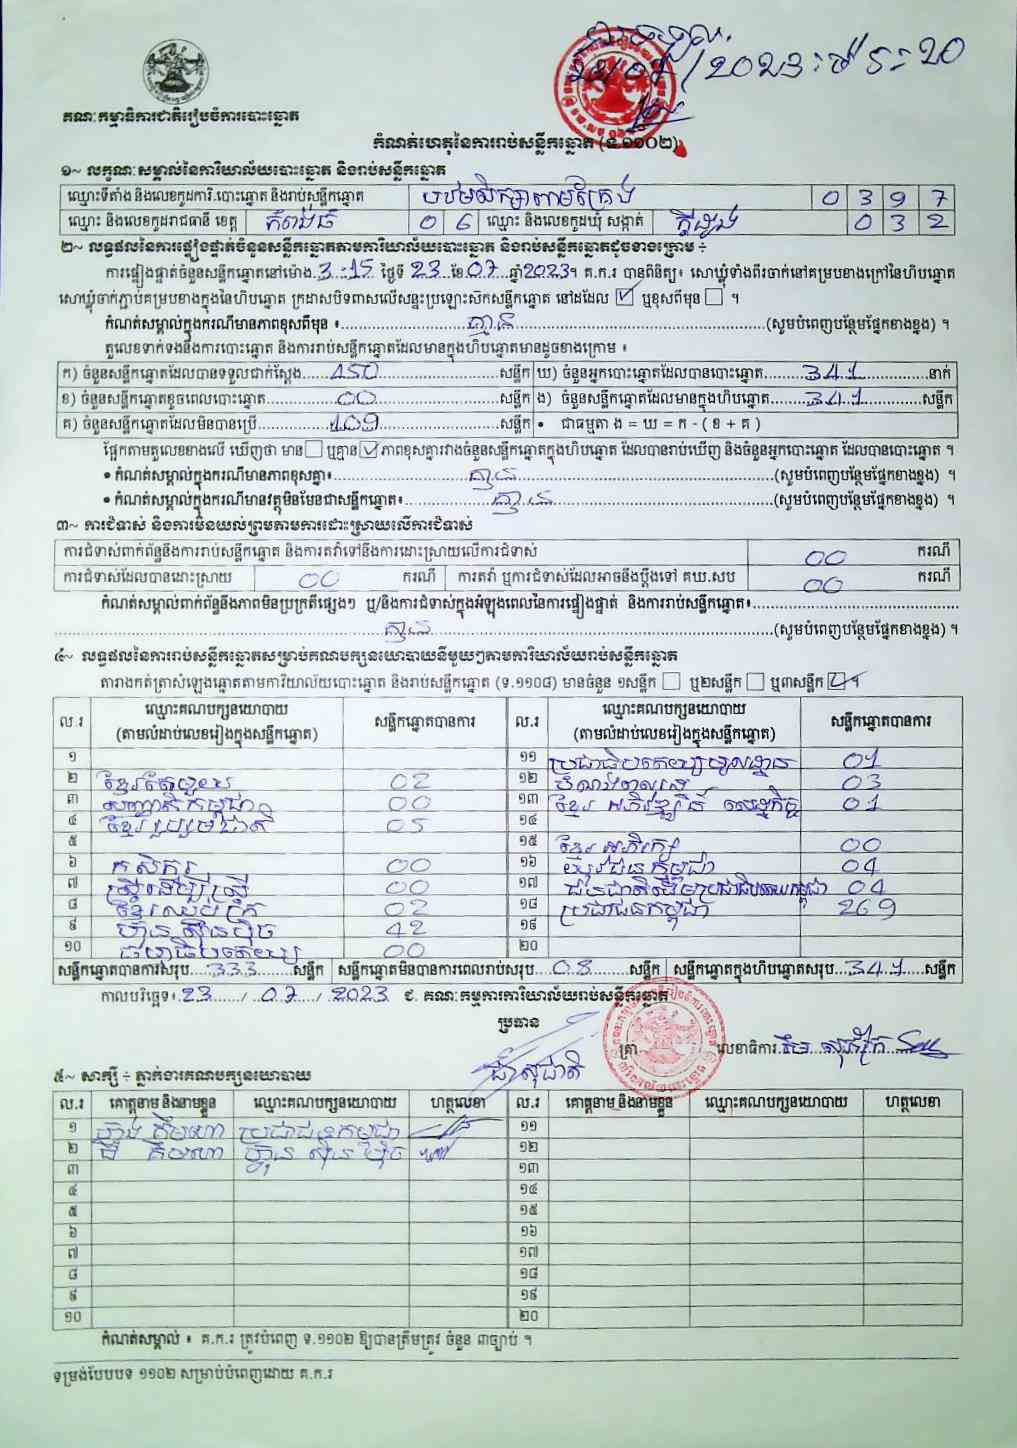 /2023
20
គណៈកម្មាធិការជាតិរៀបចំការបោះឆ្នោត
កំណត់ហេតុនៃការរាប់សន្លឹកឆ្នោត (ទ.១១០២)
១~ លក្ខណៈសម្គាល់នៃការិយាល័យបោះឆ្នោត និងរាប់សន្លឹកឆ្នោត
ឈ្មោះទីតាំង និងលេខកូដការិ.បោះឆ្នោត និងរាប់សន្លឹកឆ្នោត 0 3 9 7
ឈ្មោះ និងលេខកូដរាជធានី ខេត្ត កំពង់ធំ 0 6 ឈ្មោះ និងលេខកូដឃុំ សង្កាត់ 0 3 2
២~ លទ្ធផលនៃការផ្ទៀងផ្ទាត់ចំនួនសន្លឹកឆ្នោតតាមការិយាល័យបោះឆ្នោត និងរាប់សន្លឹកឆ្នោតដូចខាងក្រោម ÷
ការផ្ទៀងផ្ទាត់ចំនួនសន្លឹកឆ្នោតនៅម៉ោង.3:15 ថ្ងៃទី 23 ខែ07 ឆ្នាំ2023។ គ.ក.រ បានពិនិត្យ៖ សោឃ្លុំទាំងពីរចាក់នៅគម្របខាងក្រៅនៃហិបឆ្នោត
សោឃ្លុំចាក់ភ្ជាប់គម្របខាងក្នុងនៃហិបឆ្នោត ក្រដាសបិទពាសលើសន្ទះប្រឡោះស៊កសន្លឹកឆ្នោត នៅដដែល ☑ ឬខុសពីមុន ☐ ។
កំណត់សម្គាល់ក្នុងករណីមានភាពខុសពីមុន ៖ គ្មាន (សូមបំពេញបន្ថែមផ្នែកខាងខ្នង) ។
តួលេខទាក់ទងនឹងការបោះឆ្នោត និងការរាប់សន្លឹកឆ្នោតដែលមានក្នុងហិបឆ្នោតមានដូចខាងក្រោម ៖
ក) ចំនួនសន្លឹកឆ្នោតដែលបានទទួលជាក់ស្តែង 450 សន្លឹក ឃ) ចំនួនអ្នកបោះឆ្នោតដែលបានបោះឆ្នោត 341 នាក់
ខ) ចំនួនសន្លឹកឆ្នោតខូចពេលបោះឆ្នោត 00 សន្លឹក ង) ចំនួនសន្លឹកឆ្នោតដែលមានក្នុងហិបឆ្នោត 341 សន្លឹក
គ) ចំនួនសន្លឹកឆ្នោតដែលមិនបានប្រើ 109 សន្លឹក • ជាធម្មតា ង = ឃ = ក - ( ខ + គ )
ផ្អែកតាមតួលេខខាងលើ ឃើញថា មាន☐ ឬគ្មាន☑ភាពខុសគ្នារវាងចំនួនសន្លឹកឆ្នោតក្នុងហិបឆ្នោត ដែលបានរាប់ឃើញ និងចំនួនអ្នកបោះឆ្នោត ដែលបានបោះឆ្នោត ។
• កំណត់សម្គាល់ក្នុងករណីមានភាពខុសគ្នា៖ គ្មាន (សូមបំពេញបន្ថែមផ្នែកខាងខ្នង) ។
• កំណត់សម្គាល់ក្នុងករណីមានវត្ថុមិនមែនជាសន្លឹកឆ្នោត៖ គ្មាន (សូមបំពេញបន្ថែមផ្នែកខាងខ្នង) ។
៣~ ការជំទាស់ និងការមិនយល់ព្រមតាមការដោះស្រាយលើការជំទាស់
ការជំទាស់ពាក់ព័ន្ធនឹងការរាប់សន្លឹកឆ្នោត និងការតវ៉ាទៅនឹងការដោះស្រាយលើការជំទាស់ 00 ករណី
ការជំទាស់ដែលបានដោះស្រាយ 00 ករណី ការតវ៉ា ឬការជំទាស់ដែលអាចនឹងប្តឹងទៅ គឃ.សប 00 ករណី
កំណត់សម្គាល់ពាក់ព័ន្ធនឹងភាពមិនប្រក្រតីផ្សេងៗ ឬ/និងការជំទាស់ក្នុងអំឡុងពេលនៃការផ្ទៀងផ្ទាត់ និងការរាប់សន្លឹកឆ្នោត៖
គ្មាន (សូមបំពេញបន្ថែមផ្នែកខាងខ្នង) ។
៤~ លទ្ធផលនៃការរាប់សន្លឹកឆ្នោតសម្រាប់គណបក្សនយោបាយនីមួយៗតាមការិយាល័យរាប់សន្លឹកឆ្នោត
តារាងកត់ត្រាសំឡេងឆ្នោតតាមការិយាល័យបោះឆ្នោត និងរាប់សន្លឹកឆ្នោត (ទ.១១០៨) មានចំនួន ១សន្លឹក ☐ ឬ២សន្លឹក ☐ ឬ៣សន្លឹក ☑។
ល.រ ឈ្មោះគណបក្សនយោបាយ (តាមលំដាប់លេខរៀងក្នុងសន្លឹកឆ្នោត) សន្លឹកឆ្នោតបានការ ល.រ ឈ្មោះគណបក្សនយោបាយ (តាមលំដាប់លេខរៀងក្នុងសន្លឹកឆ្នោត) សន្លឹកឆ្នោតបានការ
១ ១១ ប្រជាធិបតេយ្យមូលដ្ឋាន 01
២ ខ្មែរតែមួយ 02 ១២ 03
៣ សញ្ជាតិកម្ពុជា 00 ១៣ ខ្មែរ អភិវឌ្ឍន៍ សេដ្ឋកិច្ច 01
៤ ខ្មែររួបរួមជាតិ 05 ១៤
៥ ១៥ ខ្មែរ អភិរក្ស 00
៦ កសិករ 00 ១៦ យុវជនកម្ពុជា 04
៧ ស្ត្រីដើម្បីស្ត្រី 00 ១៧ 04
៨ ខ្មែរឈប់ក្រ 02 ១៨ ប្រជាជនកម្ពុជា 269
៩ ហ៊្វុនស៊ិនប៉ិច 42 ១៩
១០ ធម្មាធិបតេយ្យ 00 ២០
សន្លឹកឆ្នោតបានការសរុប 333 សន្លឹក សន្លឹកឆ្នោតមិនបានការពេលរាប់សរុប 08 សន្លឹក សន្លឹកឆ្នោតក្នុងហិបឆ្នោតសរុប 341 សន្លឹក
កាលបរិច្ឆេទ៖ 23 / 07 / 2023 ជ. គណៈកម្មការការិយាល័យរាប់សន្លឹកឆ្នោត
ប្រធាន
ត្រា លេខាធិការ
៥~ សាក្សី ÷ ភ្នាក់ងារគណបក្សនយោបាយ
ល.រ គោត្តនាម និងនាមខ្លួន ឈ្មោះគណបក្សនយោបាយ ហត្ថលេខា ល.រ គោត្តនាម និងនាមខ្លួន ឈ្មោះគណបក្សនយោបាយ ហត្ថលេខា
១ ប្រជាជនកម្ពុជា ១១
២ ហ៊្វុន ស៊ិន ប៉ិច ១២
៣ ១៣
៤ ១៤
៥ ១៥
៦ ១៦
៧ ១៧
៨ ១៨
៩ ១៩
១០ ២០
កំណត់សម្គាល់ ៖ គ.ក.រ ត្រូវបំពេញ ទ.១១០២ ឱ្យបានត្រឹមត្រូវ ចំនួន ៣ច្បាប់ ។
ទម្រង់បែបបទ ១១០២ សម្រាប់បំពេញដោយ គ.ក.រ